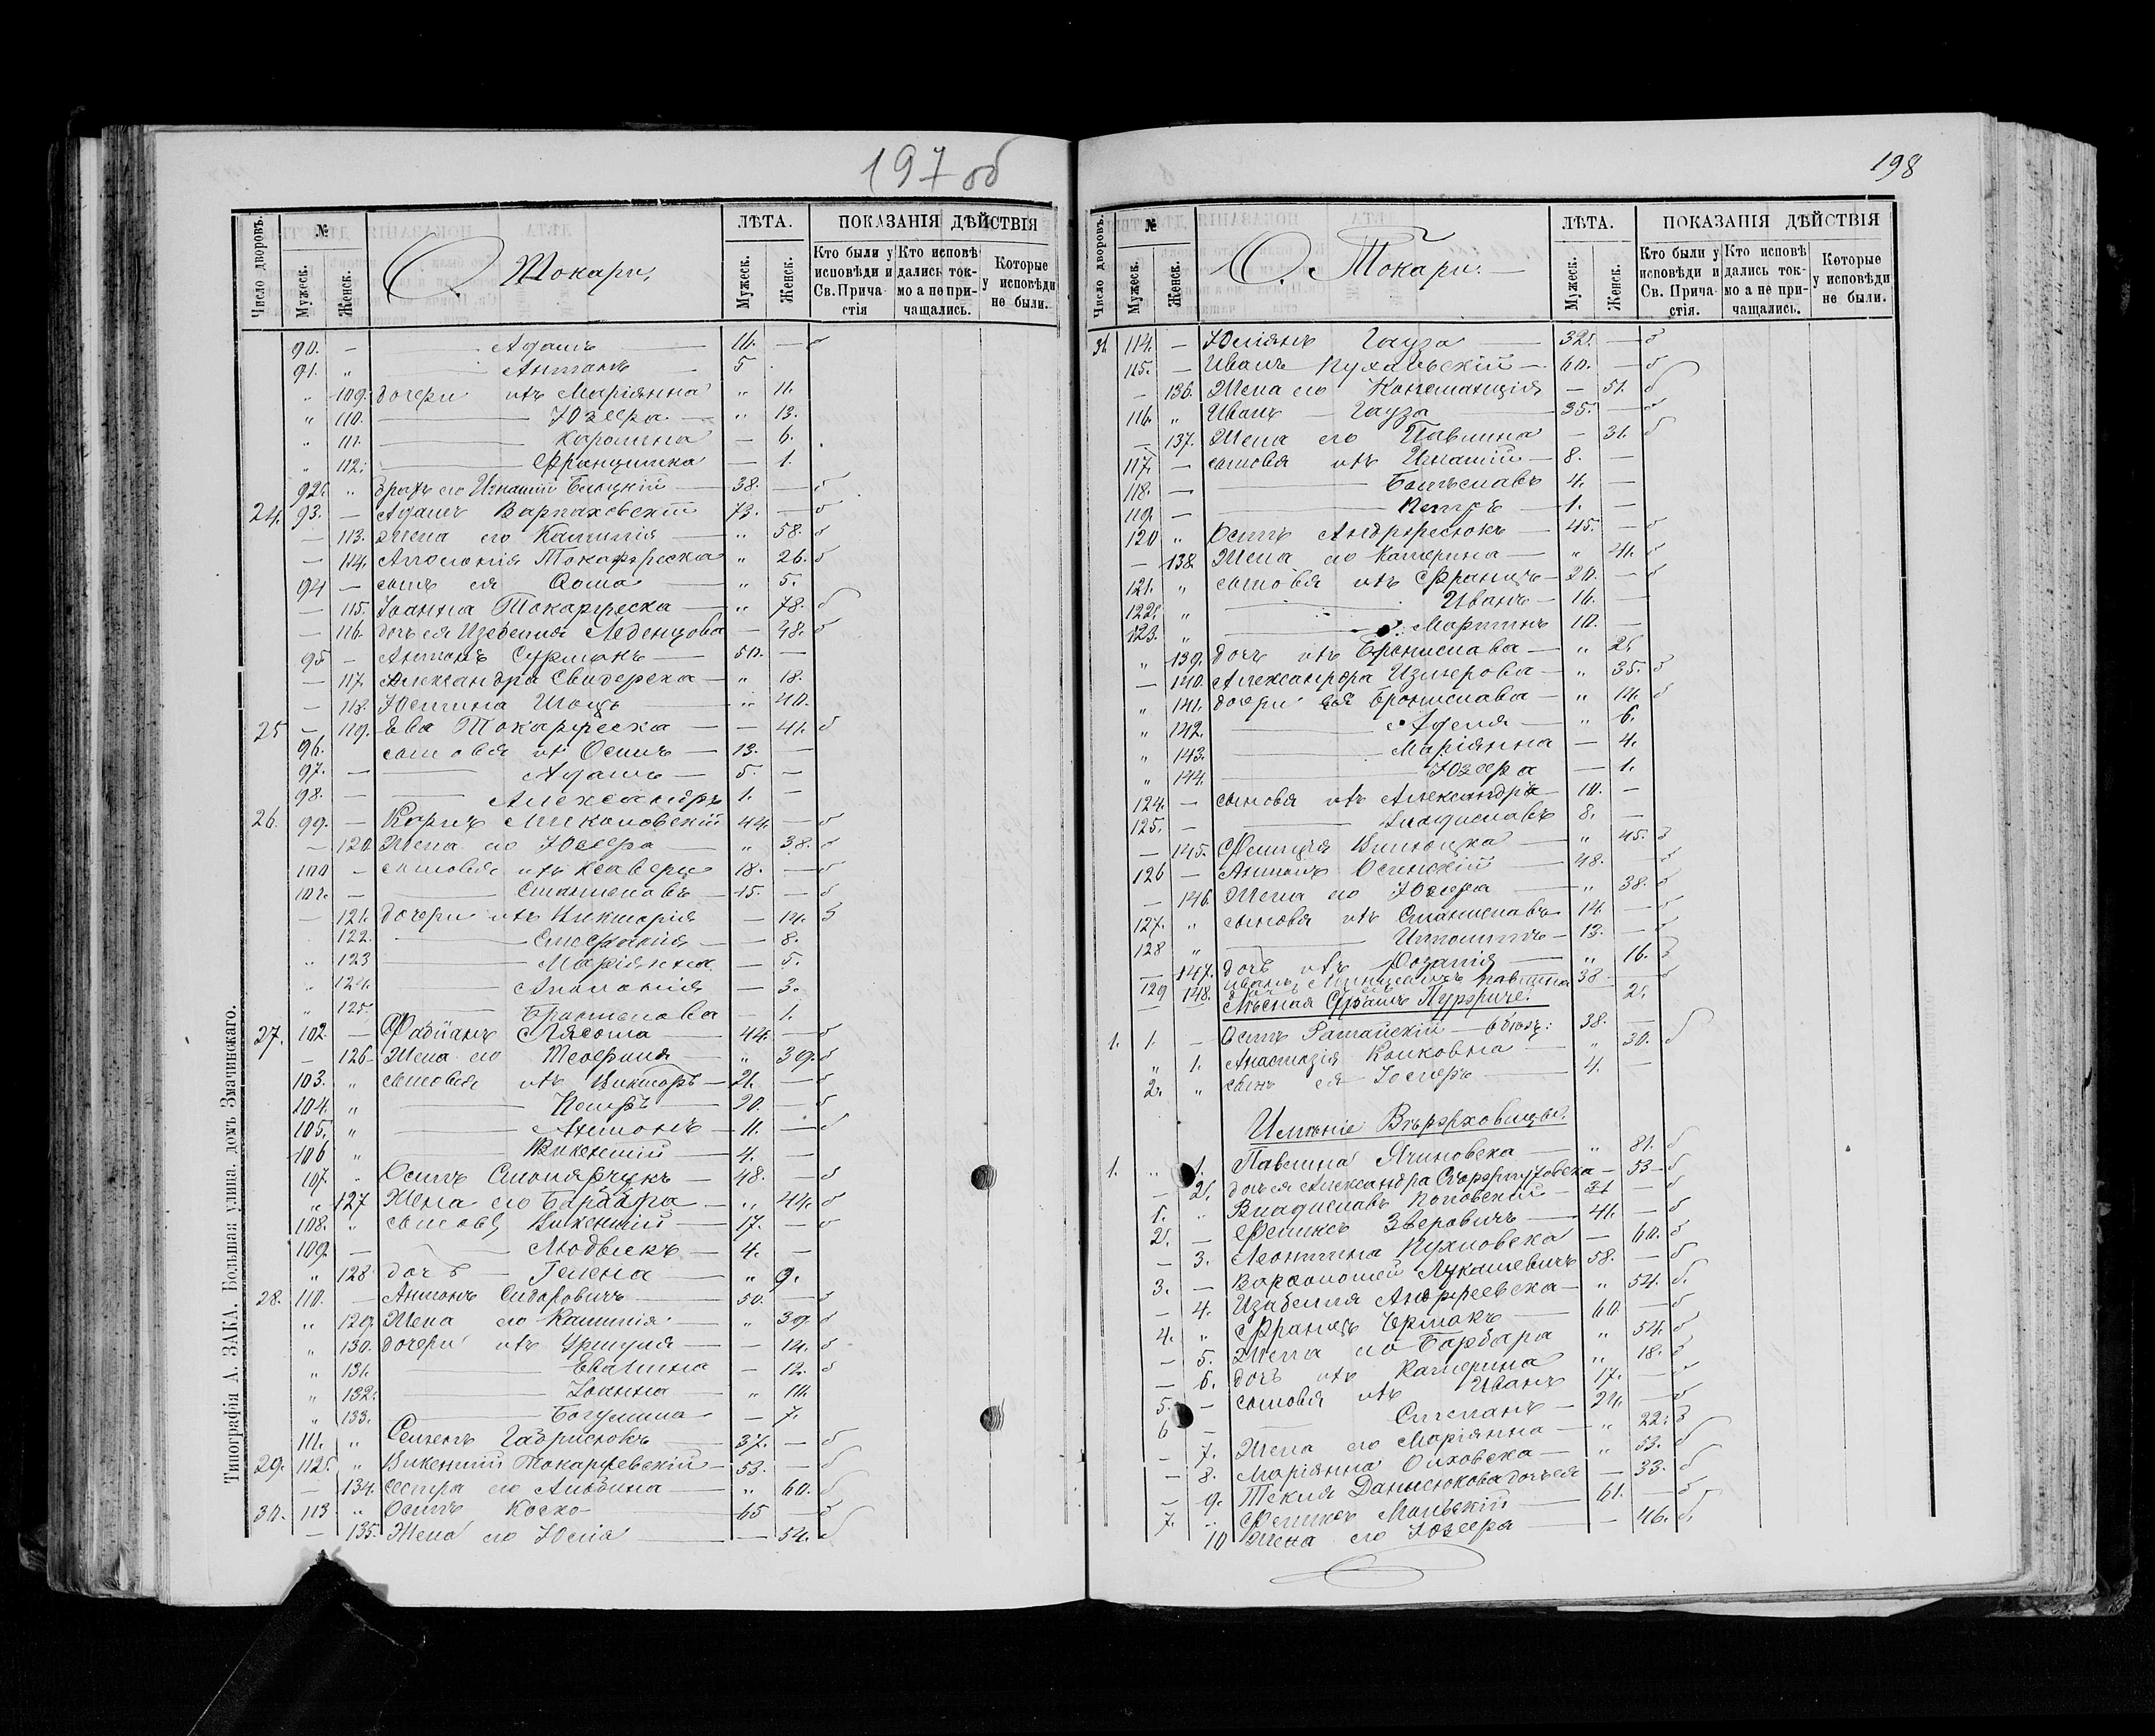 197 об
Число дворовъ.
№
Мужеск.
Женск.
О. Токари.
ЛѢТА.
Мужеск.
Женск.
ПОКАЗАНІЯ ДѢЙСТВІЯ
Кто были у исповѣди и Св. Причастія
Кто исповѣдались токмо а не причащались.
Которые у исповѣди не были.
90. — Адамъ — 11. — б
91. „ Антонъ 5
„ 109. дочери ихъ Маріянна „ 11.
„ 110. — Юзефа — „ 13.
„ 111. — Каролина — 6.
„ 112. — Францишка — 1.
92. „ братъ его Игнатій — 38. — б
24. 93. — Адамъ Варпаховскій 73. — б
— 113. Жена его „ 58. б
— 114. Аполонія „ 26. б
94 — сынъ ея „ 5.
— 115. Іоанна „ 78. б
— 116. дочь ея Леденцова — 48. б
95 — Антонъ 50. —
— 117. Александра Свидерска — „ 18.
— 118. Юстина „ 40.
25 — 119. Ева — 41. б
96. сыновья ихъ Осипъ — 13. —
97. — Адамъ — 5. —
98. — Александръ 1. —
26. 99. — 44. — б
— 120. Жена его Юзефа „ 38. б
100 — сыновья ихъ Ксаверы 18. — б
101. — Станиславъ — 15. — б
— 121. дочери ихъ Викторія — 14. б
122. — Стефанія — 8.
„ 123 — Маріянна — 5.
„ 124. — Аполонія — 3.
„ 125. — Бронислава — 1.
27. 102 — Фабіянъ Лясота 44. — б
— 126 Жена его Теофиля „ 39. б
103. „ сыновья ихъ Викторъ — 21. — б
104. „ — Петръ — 20. — б
105. „ — Антонъ — 11. — б
106 „ — Викентій — 4. —
107. „ Осипъ Столярчукъ — 48. — б
„ 127 Жена его Барбара — „ 44. б
108. „ Викентій — 17. — б
109. — Людвикъ — 4. —
„ 128 дочь — Гелена — „ 9.
28. 110. — Антонъ Сидоровичъ — 50. — б
„ 129. Жена его „ 39. б
„ 130. дочери ихъ Уршуля — — 14. б
„ 131. — Евалина — 12. б
„ 132. — Іоанна — „ 10.
„ 133. — Богумила — 7.
111. „ Семенъ Гаврилюкъ — 37. — б
29. 112. „ Викентій Токаржевскій — 53. — б
— 134. сестра его Альбина — „ 60. б
30. 113 „ Осипъ Коско — 65 — б
— 135. Жена его Юлія — — 54. б
Типографія А. ЗАКА. Большая улица. домъ Змачинскаго.
198
Число дворовъ.
№
Мужеск.
Женск.
О. Токари. —
ЛѢТА.
Мужеск.
Женск.
ПОКАЗАНІЯ ДѢЙСТВІЯ
Кто были у исповѣди и Св. Причастія.
Кто исповѣдались токмо а не причащались.
Которые у исповѣди не были.
31. 114. — Юліянъ Гауза — 32. — б
115. — Иванъ Пухальскій — 60. — б
— 136. Жена его Констанція — 51. б
116. „ Иванъ — Гауза 35. — б
— 137. Жена его Павлина — 31. б
117. — сыновья ихъ Игнатій — 8. —
118. — Болеславъ 4. —
119. — Петръ 1. —
120 „ Осипъ Андреюкъ — 45. — б
— 138. Жена его Катерина — „ 41. б
121. „ сыновья ихъ Францъ — 20. — б
122. „ — Иванъ — 16. —
123. „ — Мартинъ 10. —
„ 139. дочь ихъ Бронислава — „ 2.
— 140. Александра — „ 35. б
„ 141. дочери ея Бронислава — „ 14. б
„ 142. — Аделя — „ 6.
„ 143. — Маріянна — 4.
„ 144. — Юзефа — 1.
124. — сыновья ихъ Александръ — 10. —
125. — Владиславъ 8. —
— 145. Фелиція „ 45. б
126 — Антонъ Осинскій 48. — б
— 146. Жена его Юзефа „ 38. б
127. „ сыновья ихъ Станиславъ 14. — б
128 „ — Ипполитъ — 13. — б
— 147. дочь ихъ Розалія — „ 16. б
129 Иванъ 38 —
— 148. Павлина 2.
Лѣсная Стражъ
1. 1. — Осипъ Ратайскій — 38. —
„ 1. Анастазія „ 30. б
2. „ сынъ ея Іосифъ 4. —
Имѣніе
1. „ 1. Павлина Ячиновска — „ 81. б
— 2. дочь ея Александра — 53 — б
1. „ Владиславъ 31 — б
2. — Феликсъ Зверовичъ — 41. — б
— 3. Леонтина — 60. б
3. — Варфоломей Лукашевичъ 58. — б
— 4. Изабелля Андреевска — „ 54. б
4. „ Францъ Ермакъ — 60. — б
— 5. Жена его Барбара „ 54. б
— 6. дочь ихъ Катерина „ 18. б
5. — сыновья ихъ Иванъ 17. — б
6 — Степанъ — 24. — б
— 7. Жена его Маріянна — „ 22. б
— 8. Маріянна — „ 53. б
— 9. Текля Данилюкова дочь ея — 33. б
7. „ Феликсъ 61. — б
10 Жена его Юзефа — 46. б